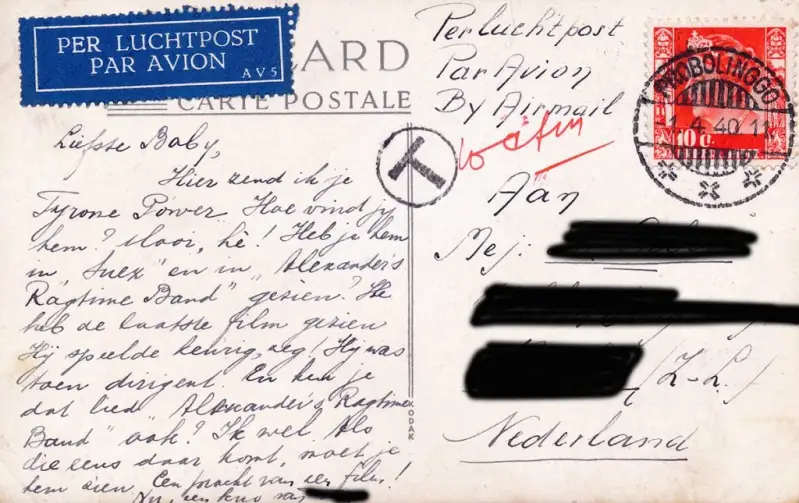 PER LUCHTPOST
PAR AVION
AV5
ARD
CARTE POSTALE
Liefste Baby,
Hier zend ik je
Tyrone Power. Hoe vind jy
hem? Mooi, hè! Heb je hem
in „Suez” en in „Alexander's
Ragtime Band” gezien? Ik
heb de laatste film gezien
Hij speelde keurig, zeg! Hij was
toen dirigent. En ken je
dat lied „Alexander's Ragtime
Band” ook? Ik wel. Als
die eens daar komt, moet je
hem zien. Een pracht van een film!
Nu, een kus van
KODAK
T
Per luchtpost
Par Avion
By Airmail
10
PROBOLINGGO
1.4.40.11
10 c
Aan
Mej:
(Z-L.)
Nederland